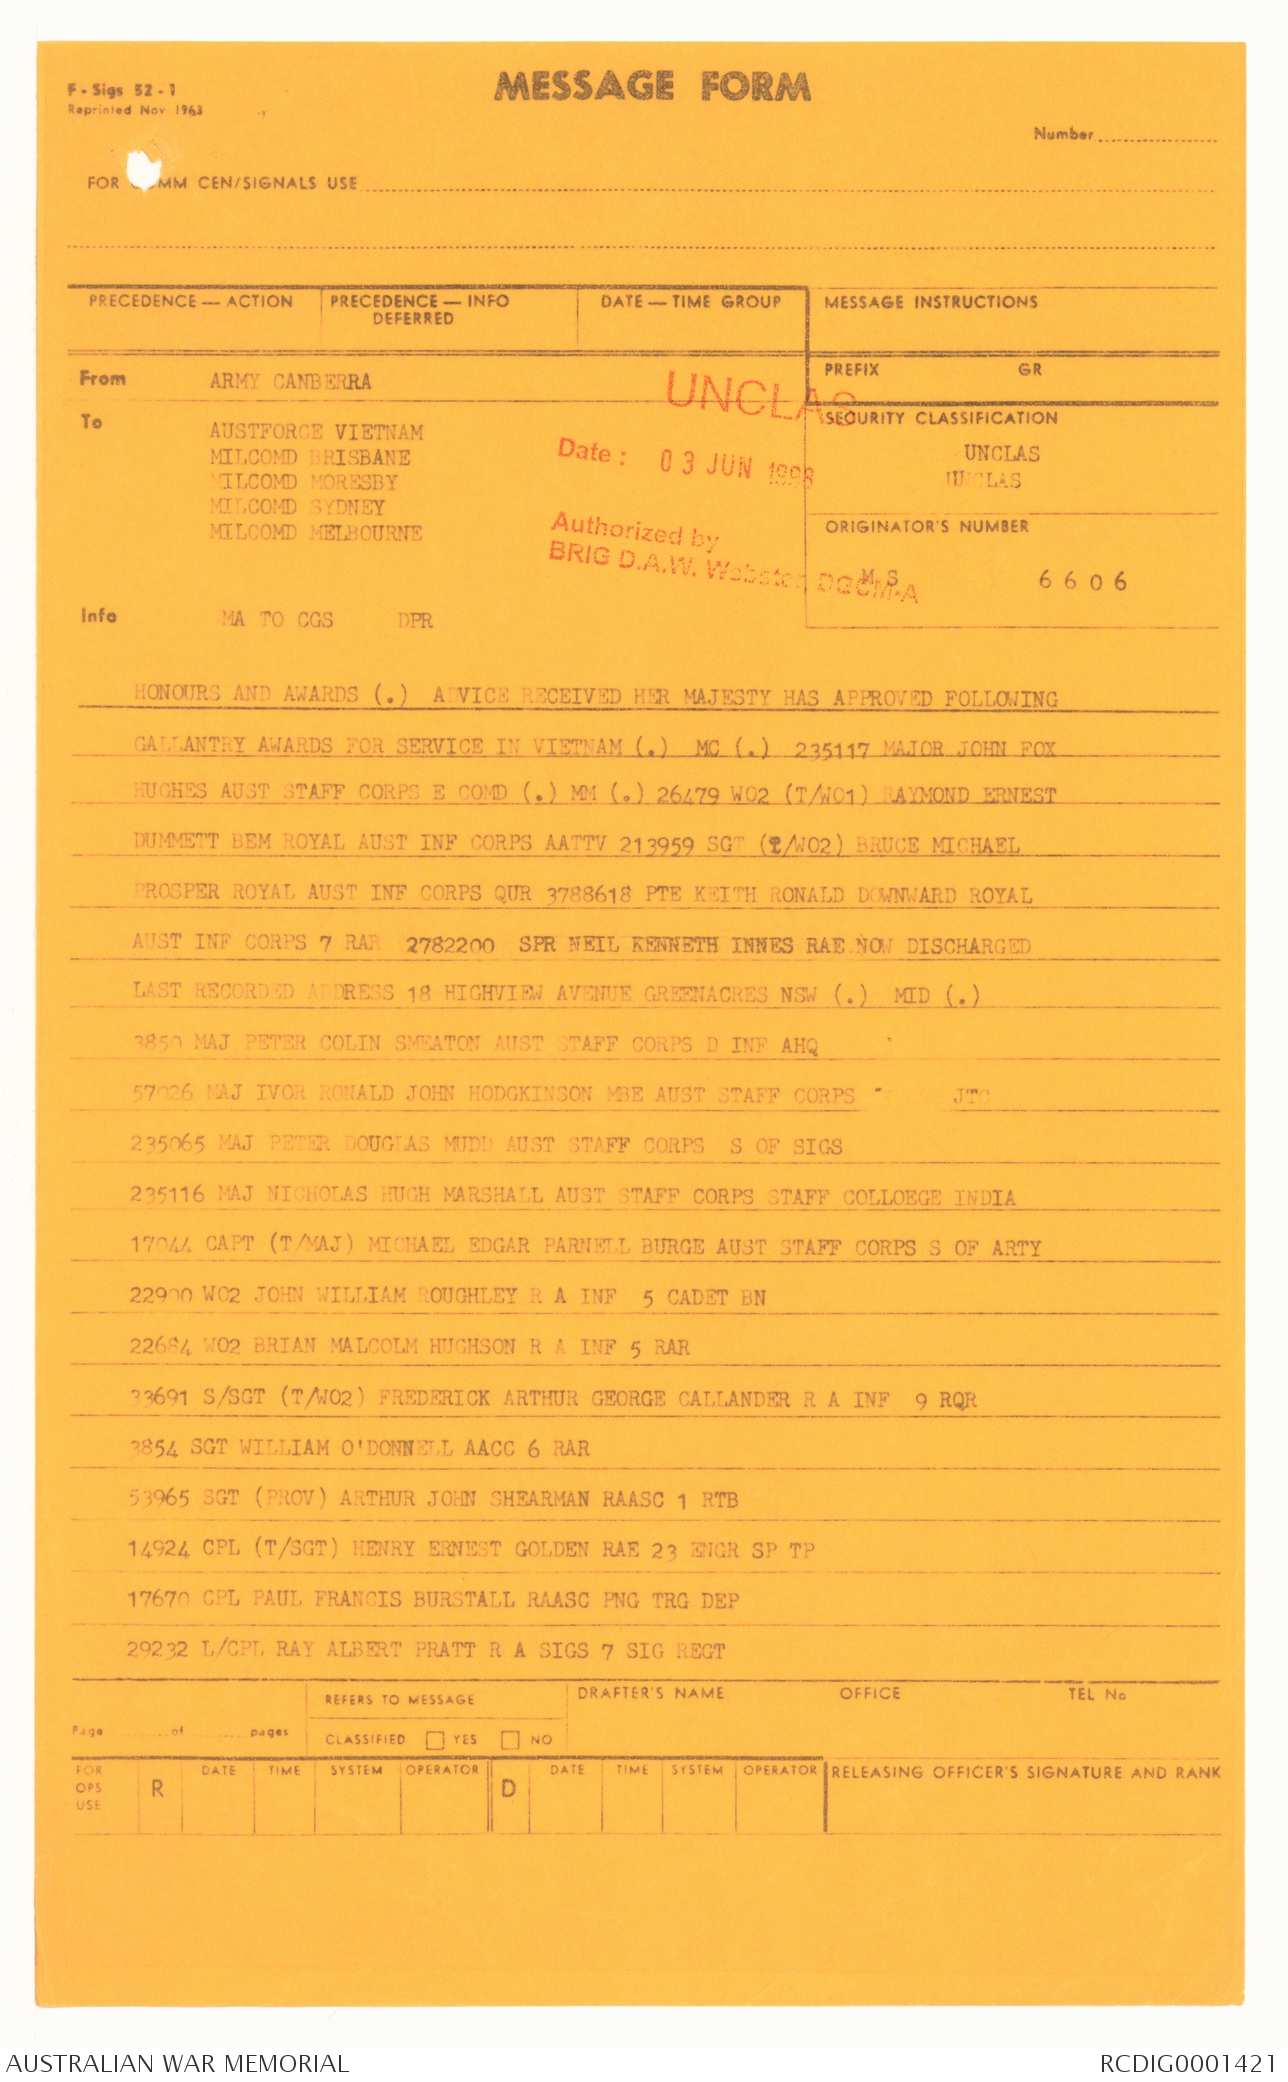 F - Sigs 52 - 1
Reprinted Nov 1963
MESSAGE FORM
Number
FOR COMM CEN/SIGNALS USE
PRECEDENCE — ACTION
PRECEDENCE — INFO
DEFERRED
DATE — TIME GROUP
MESSAGE INSTRUCTIONS
From ARMY CANBERRA
PREFIX GR
UNCLAS
To AUSTFORCE VIETNAM
MILCOMD BRISBANE
MILCOMD MORESBY
MILCOMD SYDNEY
MILCOMD MELBOURNE
Date : 03 JUN 1998
Authorized by
BRIG D.A.W. Webster, DGCM-A
SECURITY CLASSIFICATION
UNCLAS
UNCLAS
ORIGINATOR'S NUMBER
MS 6606
Info MA TO CGS DPR
HONOURS AND AWARDS (.) ADVICE RECEIVED HER MAJESTY HAS APPROVED FOLLOWING
GALLANTRY AWARDS FOR SERVICE IN VIETNAM (.) MC (.) 235117 MAJOR JOHN FOX
HUGHES AUST STAFF CORPS E COMD (.) MM (.) 26479 WO2 (T/WO1) RAYMOND ERNEST
DUMMETT BEM ROYAL AUST INF CORPS AATTV 213959 SGT (T/WO2) BRUCE MICHAEL
PROSPER ROYAL AUST INF CORPS QUR 3788618 PTE KEITH RONALD DOWNWARD ROYAL
AUST INF CORPS 7 RAR 2782200 SPR NEIL KENNETH INNES RAE NOW DISCHARGED
LAST RECORDED ADDRESS 18 HIGHVIEW AVENUE GREENACRES NSW (.) MID (.)
3850 MAJ PETER COLIN SMEATON AUST STAFF CORPS D INF AHQ
57026 MAJ IVOR RONALD JOHN HODGKINSON MBE AUST STAFF CORPS JTC
235065 MAJ PETER DOUGLAS MUDD AUST STAFF CORPS S OF SIGS
235116 MAJ NICHOLAS HUGH MARSHALL AUST STAFF CORPS STAFF COLLOEGE INDIA
17044 CAPT (T/MAJ) MICHAEL EDGAR PARNELL BURGE AUST STAFF CORPS S OF ARTY
22900 WO2 JOHN WILLIAM ROUGHLEY R A INF 5 CADET BN
22684 WO2 BRIAN MALCOLM HUGHSON R A INF 5 RAR
33691 S/SGT (T/WO2) FREDERICK ARTHUR GEORGE CALLANDER R A INF 9 RQR
3854 SGT WILLIAM O'DONNELL AACC 6 RAR
53965 SGT (PROV) ARTHUR JOHN SHEARMAN RAASC 1 RTB
14924 CPL (T/SGT) HENRY ERNEST GOLDEN RAE 23 ENGR SP TP
17670 CPL PAUL FRANCIS BURSTALL RAASC PNG TRG DEP
29232 L/CPL RAY ALBERT PRATT R A SIGS 7 SIG REGT
Page of pages
REFERS TO MESSAGE
CLASSIFIED YES NO
DRAFTER'S NAME OFFICE TEL No
FOR OPS USE
R DATE TIME SYSTEM OPERATOR
D DATE TIME SYSTEM OPERATOR
RELEASING OFFICER'S SIGNATURE AND RANK
AUSTRALIAN WAR MEMORIAL
RCDIG0001421